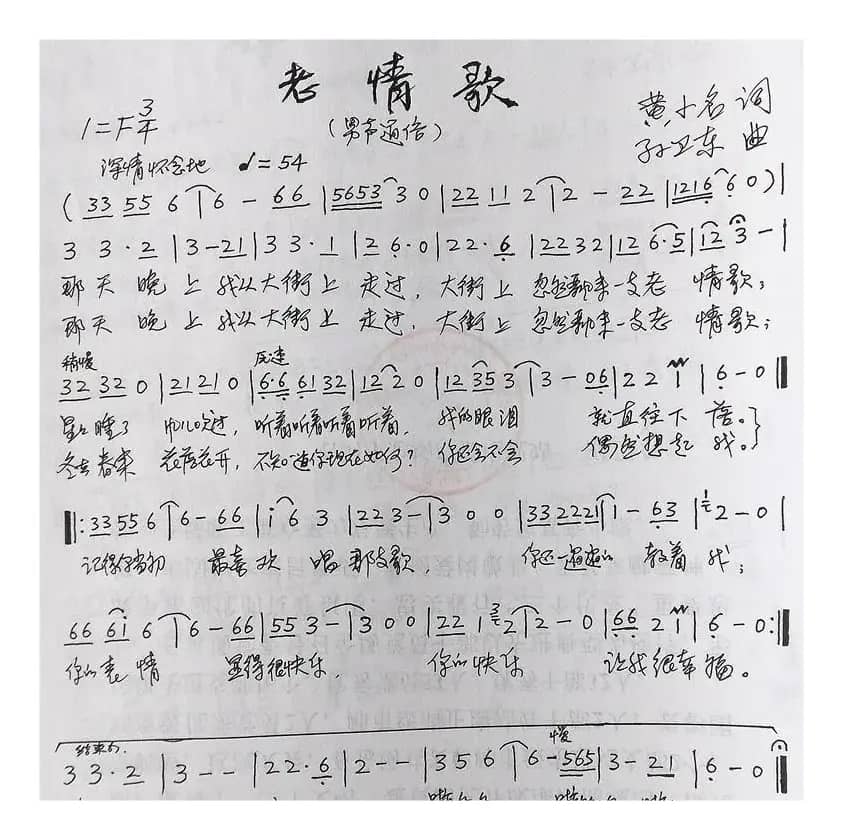 老情歌
1=F 3/4
(男声通俗)
黄小名 词
孙卫东 曲
深情怀念地 ♩=54
( 33 55 6 | 6 - 66 | 5653 3 0 | 22 11 2 | 2 - 22 | 1216 6 0 ) |
3 3· 2 | 3 - 21 | 3 3· 1 | 2 6· 0 | 22· 6 | 22 32 | 12 6·5 | 12 3 - |
那天 晚上 我从大街上 走过, 大街上 忽然飘来一支老 情歌;
那天 晚上 我从大街上 走过, 大街上 忽然飘来一支老 情歌;
稍慢 原速
32 32 0 | 21 21 0 | 6·6 61 32 | 12 2 0 | 12 35 3 | 3 - 06 | 2 2 1 | 6 - 0
星星睡了 听着听着听着听着, 我的眼泪 就直往下 落。
冬去春来 花落花开, 不知道你现在如何? 你还会不会 偶然想起 我。
‖: 33 55 6 | 6 - 66 | i 6 3 | 22 3 - | 3 0 0 | 33 222 1 | 1 - 63 | 2 - 0 |
记得你当初 最喜欢 唱那支歌, 你还一遍遍的 教着我;
66 6i 6 | 6 - 66 | 55 3 - | 3 0 0 | 22 1 2 | 2 - 0 | 66 2 1 | 6 - 0 :‖
你的表情 显得很快乐 你的快乐 让我很幸福。
结束句 慢
3 3· 2 | 3 - - | 22· 6 | 2 - - | 3 5 6 | 6 - 565 | 3 - 21 | 6 - 0 ‖